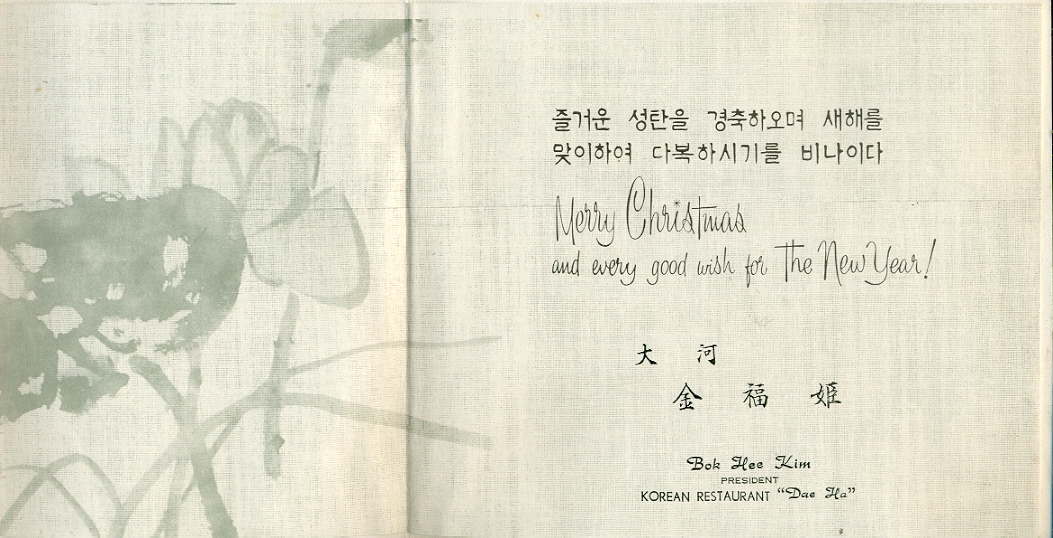 즐거운 성탄을 경축하오며 새해를
맞이하여 다복하시기를 비나이다
Merry Christmas
and every good wish for The New Year!
大 河
金 福 姬
Bok Hee Kim
PRESIDENT
KOREAN RESTAURANT "Dae Ha"